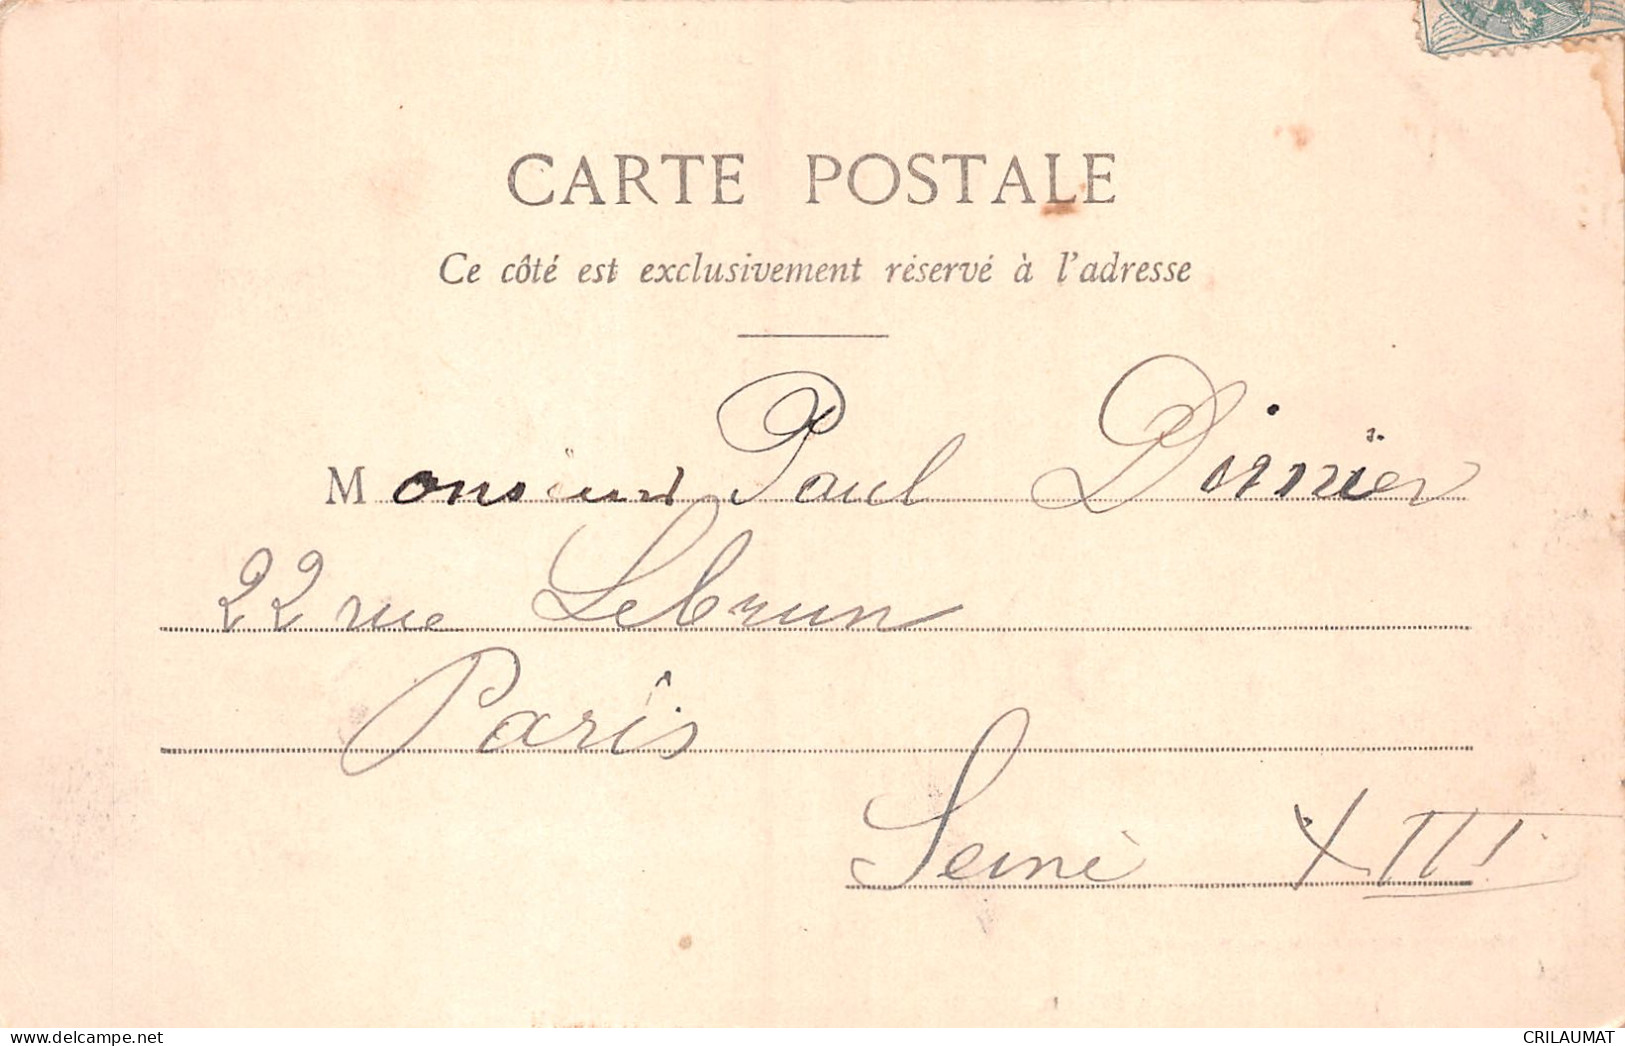 CARTE POSTALE
Ce côté est exclusivement réservé à l'adresse
Monsieur Paul
22 rue Lebrun
Paris
Seine XIII
CRILAUMAT